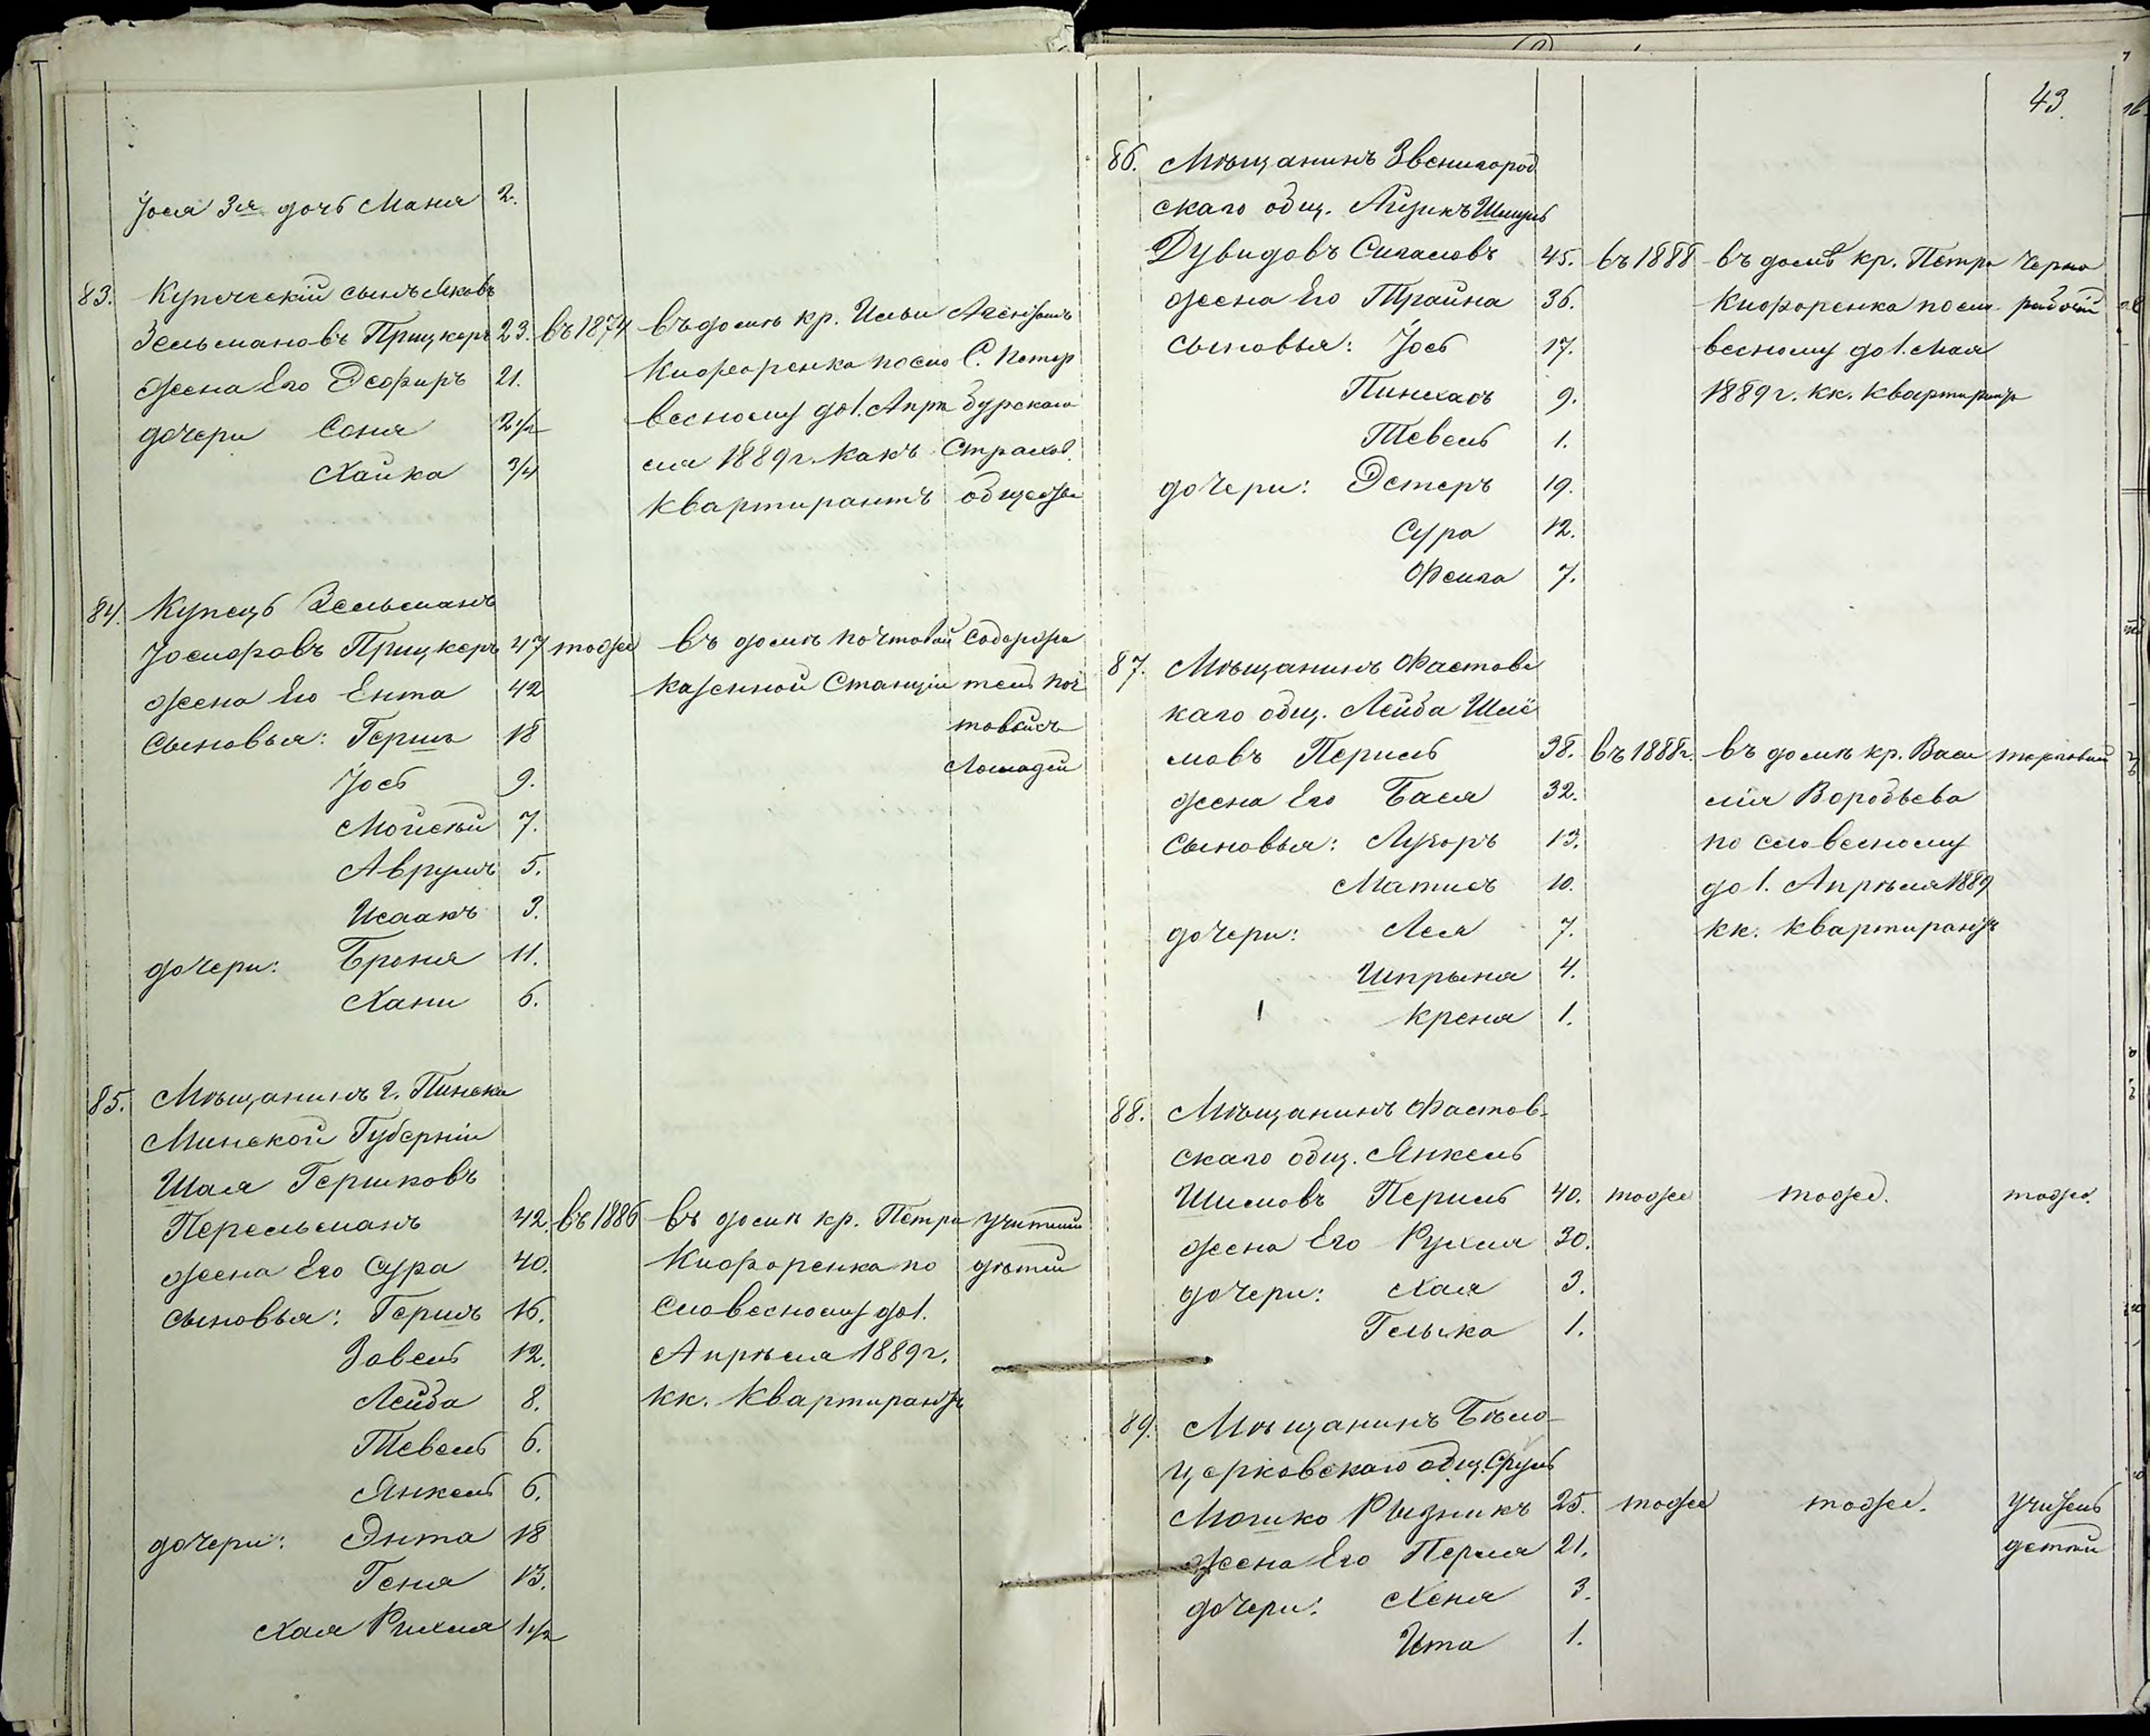 Іося 3я дочь Маня 2.
83. Купеческій сынъ Яковъ
Зельмановъ Прицкеръ 23. въ 1874 въ домѣ кр. Ильи Агентъ
жена Его Эсфиръ 21. Никифоренка по сло С. Петер
дочери Соня 2 1/2 весному до 1. Апрѣ бургскаго
Хайка 3/4 ля 1889 г. какъ Страхов.
квартирантъ общества
84. Купецъ Зельманъ
Іосифовъ Прицкеръ 47 тоже въ домѣ почтовой Содержа
жена Его Ента 42 казенной Станціи тель поч
Сыновья: Гершъ 18 товыхъ
Іось 9. Лошадей
Мойсѣй 7.
Аврумъ 5.
Исаакъ 3.
дочери: Броня 11.
Хани 6.
85. Мѣщанинъ г. Пинска
Минской Губерніи
Шая Гершковъ
Перельманъ 42. въ 1886 въ домѣ кр. Петра учитель
жена Его Сура 40. по дѣтей
сыновья: Гершъ 16. Словесному до 1.
Завель 12. Апрѣля 1889 г.
Лейба 8. кк. Квартирантъ
Тевель 6.
Янкель 6.
дочери: Энта 18
Геня 13.
Хая Рихля 1 1/2
43.
86. Мѣщанинъ Звенигород
скаго общ. Айзикъ
Дувидовъ Сигаловъ 45. въ 1888 въ домѣ кр. Петра Черно
жена Его Трайна 36. по сло рабочій
Сыновья: Іось 17. весному до 1. Мая
Пинхасъ 9. 1889 г. кк. квартирантъ
Тевель 1.
дочери: Эстеръ 19.
Сура 12.
Фейга 7.
87. Мѣщанинъ Фастовс
каго общ. Лейба Шлё
мовъ Першъ 38. въ 1888 г. въ домѣ кр. Васи торговый
жена Его Бася 32. лія Воробьева
Сыновья: Лузоръ 13. по словесному
Матисъ 10. до 1. Апрѣля 1889
дочери: Лея 7. кк. квартирантъ
Шпрыня 4.
Креня 1.
88. Мѣщанинъ Фастов-
скаго общ. Янкель
Шимовъ 40. тоже тоже. тоже.
жена Его Рухля 30.
дочери: Хая 3.
1.
89. Мѣщанинъ Бѣло-
церковскаго общ. Сруль
Мошко Рызникъ 25. тоже тоже. учитель
жена Его Перля 21. детей
дочери: Хеня 3.
Ита 1.